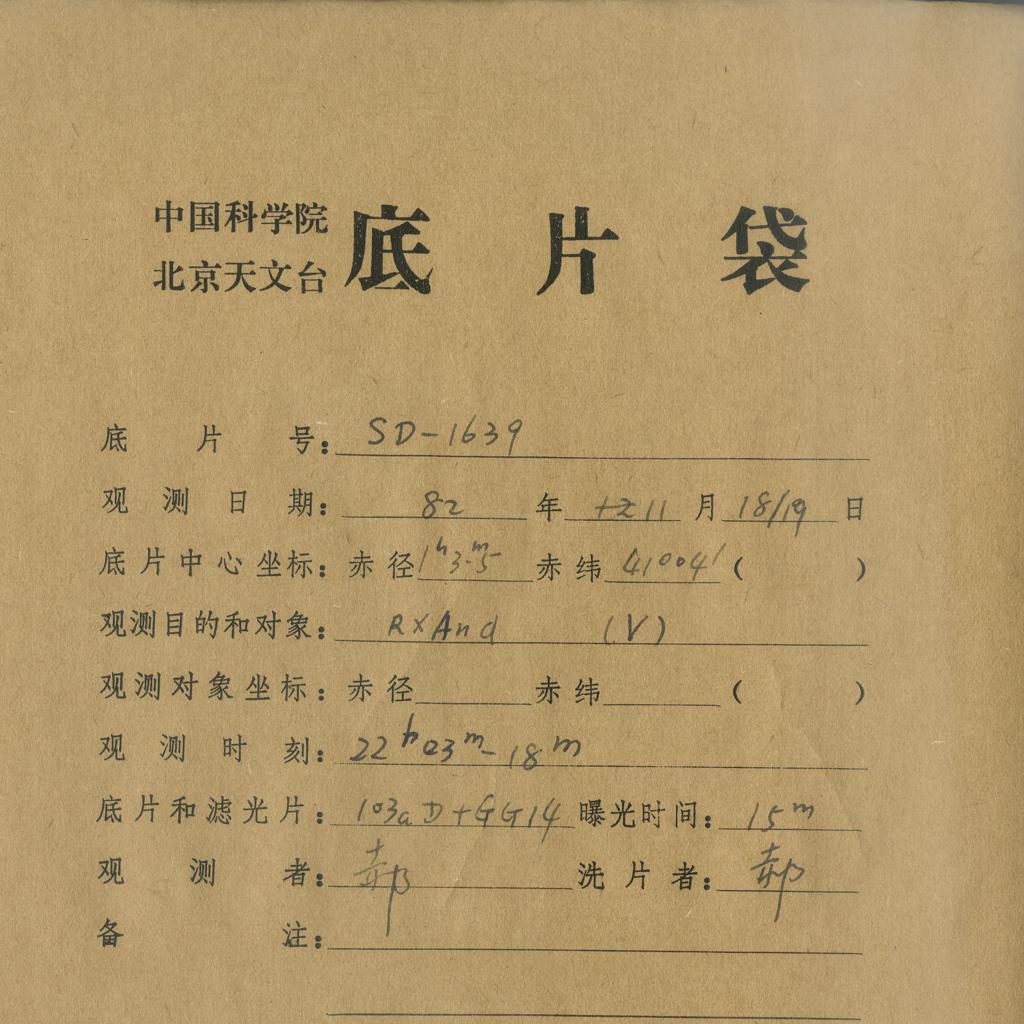 中国科学院
北京天文台
底片袋
底片号：SD-1639
观测日期：82年 11月18/19日
底片中心坐标：赤径1ʰ3ᵐ.5 赤纬41°04′（ ）
观测目的和对象：RXAnd (V)
观测对象坐标：赤径 赤纬 （ ）
观测时刻：22ʰ03ᵐ-18ᵐ
底片和滤光片：103aD+GG14 曝光时间：15ᵐ
观测者：郝 洗片者：郝
备注：